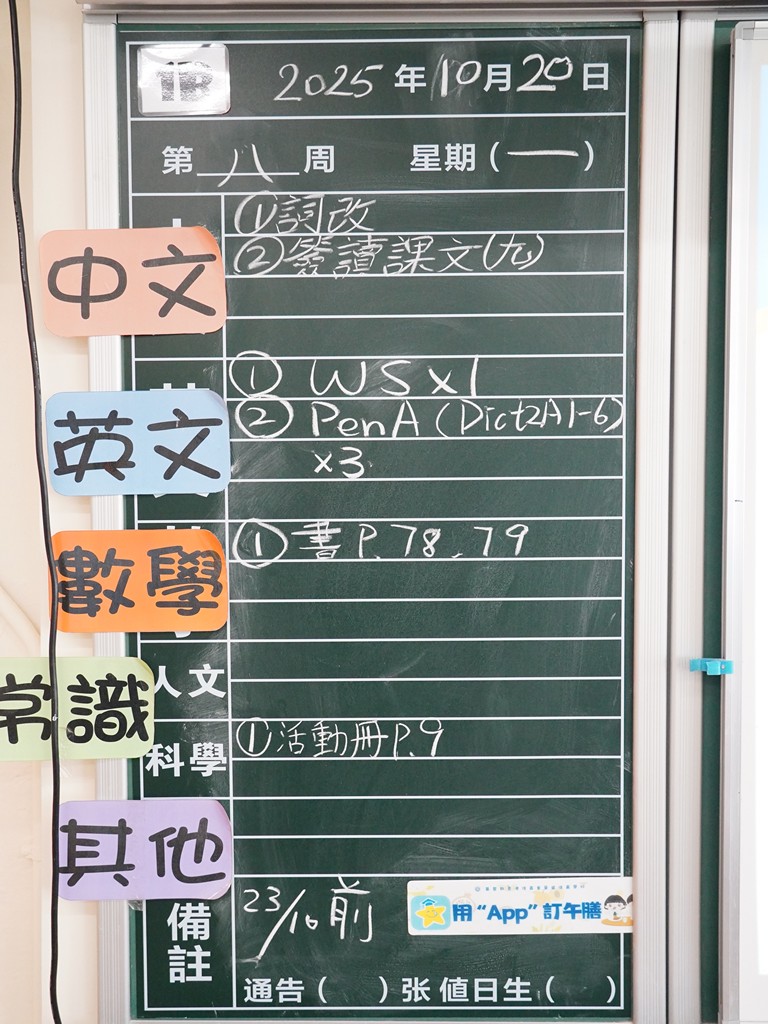 1B 2025年10月20日
第八周 星期(一)
中文
①詞改
②簽讀課文(九)
英文
① WS x1
② PenA (Dict2A1-6)
x3
數學
① 書 P.78.79
人文
常識
科學
①活動冊P.9
其他
備註
23/10前
用“App”訂午膳
通告( )张 值日生( )